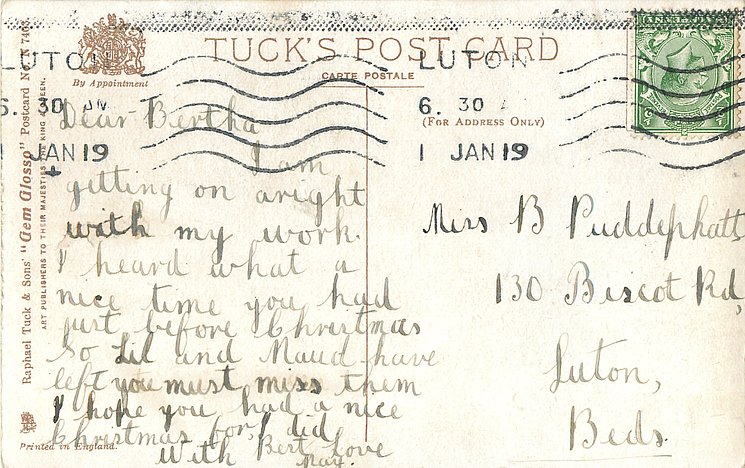 TUCK'S POST CARD
CARTE POSTALE
By Appointment
(FOR ADDRESS ONLY)
LUTON
6. 30 AM
1 JAN 19
LUTON
6. 30
1 JAN 19
Raphael Tuck & Sons' "Gem Glosso" Postcard
ART PUBLISHERS TO THEIR MAJESTIES THE KING & QUEEN.
Printed in England.
Dear Bertha
I am
getting on aright
with my work.
I heard what a
nice time you had
just before Christmas
So Lil and Maud have
left you must miss them
I hope you had a nice
Christmas for I did
With Best Love
May.
Miss B Puddephatt
130 Biscot Rd,
Luton,
Beds.